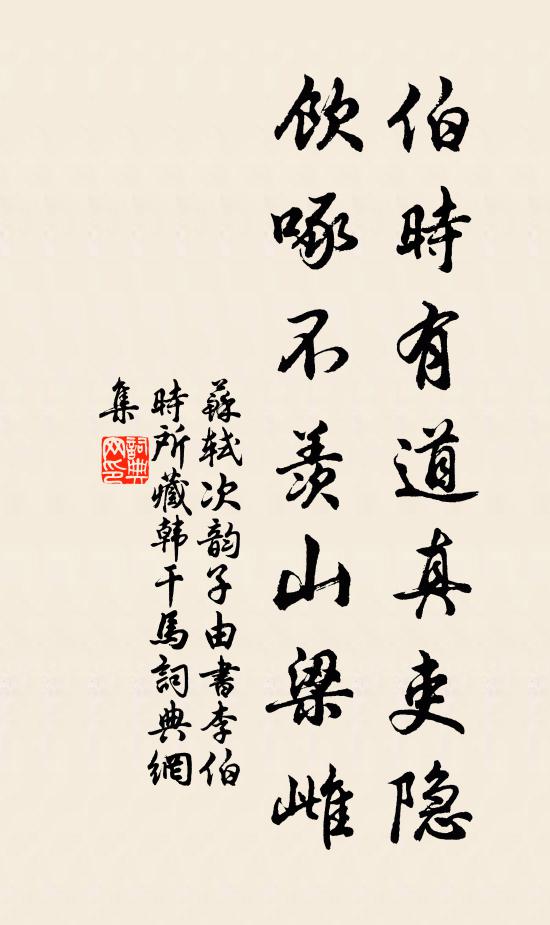 伯時有道真吏隐
飲啄不羨山梁雌
蘇軾次韵子由書李伯
時所藏韩干馬詞典網
集
詞典
网印